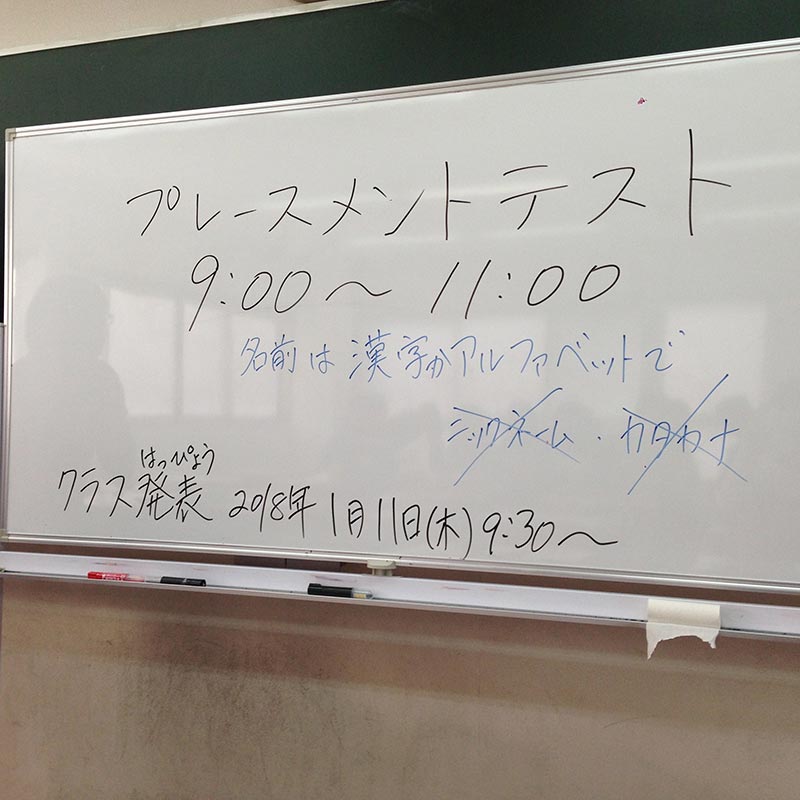 プレースメントテスト
9:00～11:00
名前は漢字かアルファベットで
ニックネーム・カタカナ
はっぴょう
クラス発表 2018年1月11日(木) 9:30～